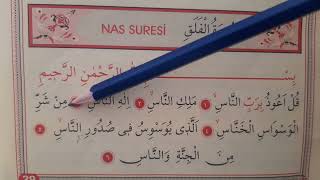 NAS SURESİ الْفَلَقِ
الرَّحْمٰنِ الرَّحِيمِ
قُلْ اَعُوذُ بِرَبِّ النَّاسِۙ ١ مَلِكِ النَّاسِۙ ٢ اِلٰهِ النَّاسِۙ مِنْ شَرِّ
الْوَسْوَاسِ الْخَنَّاسِۙ ٤ اَلَّذِى يُوَسْوِسُ فِى صُدُورِ النَّاسِۙ ٥
مِنَ الْجِنَّةِ وَالنَّاسِ ٦